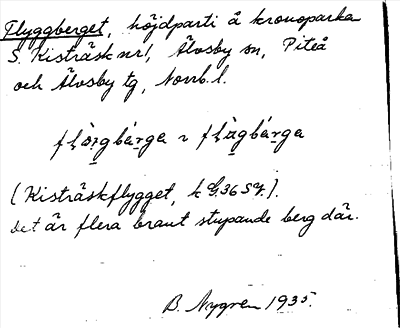 Flyggberget, höjdparti å kronoparken
S. Kisträsk nr 1, Älvsby sn, Piteå
och Älvsby tg, Norrb. l.
(Kisträskflygget, k G.36 S.y.).
det är flera brant stupande berg där.
B. Nygren 1935.